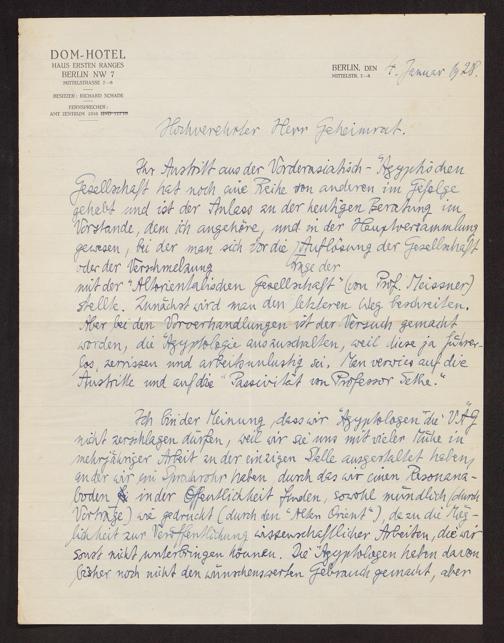 DOM-HOTEL
HAUS ERSTEN RANGES
BERLIN NW 7
MITTELSTRASSE 7-8
BESITZER: RICHARD SCHADE
FERNSPRECHER:
AMT ZENTRUM
BERLIN, DEN 4. Januar 1928.
MITTELSTR. 7-8
Hochverehrter Herr Geheimrat.
Ihr Austritt aus der Vorderasiatisch-Ägyptischen
Gesellschaft hat noch eine Reihe von anderen im Gefolge
gehabt und ist der Anlass zu der heutigen Beratung im
Vorstande, dem ich angehöre, und in der Hauptversammlung
gewesen, bei der man sich vor die Auflösung der Gesellschaft
oder der Verschmelzung Frage der
mit der "Altorientalischen Gesellschaft" (von Prof. Meissner)
stellte. Zunächst wird man den letzteren Weg beschreiten.
Aber bei den Vorverhandlungen ist der Versuch gemacht
worden, die Ägyptologie auszuschalten, weil diese ja führer-
los, zerrissen und arbeitsunlustig sei. Man verwies auf die
Austritte und auf die "Passivität von Professor Sethe."
Ich bin der Meinung, dass wir Ägyptologen die VÄG
nicht zerschlagen dürfen, weil wir sie uns mit vieler Mühe in
mehrjähriger Arbeit zu der einzigen Stelle ausgestaltet haben,
an der wir ein Sprachrohr haben, durch das wir einen Resonanz-
boden in der Öffentlichkeit finden, sowohl mündlich (durch
Vorträge) wie gedruckt (durch den "Alten Orient"), dazu die Mög-
lichkeit zur Veröffentlichung wissenschaftlicher Arbeiten, die wir
sonst nicht unterbringen können. Die Ägyptologen haben davon
bisher noch nicht den wünschenswerten Gebrauch gemacht, aber